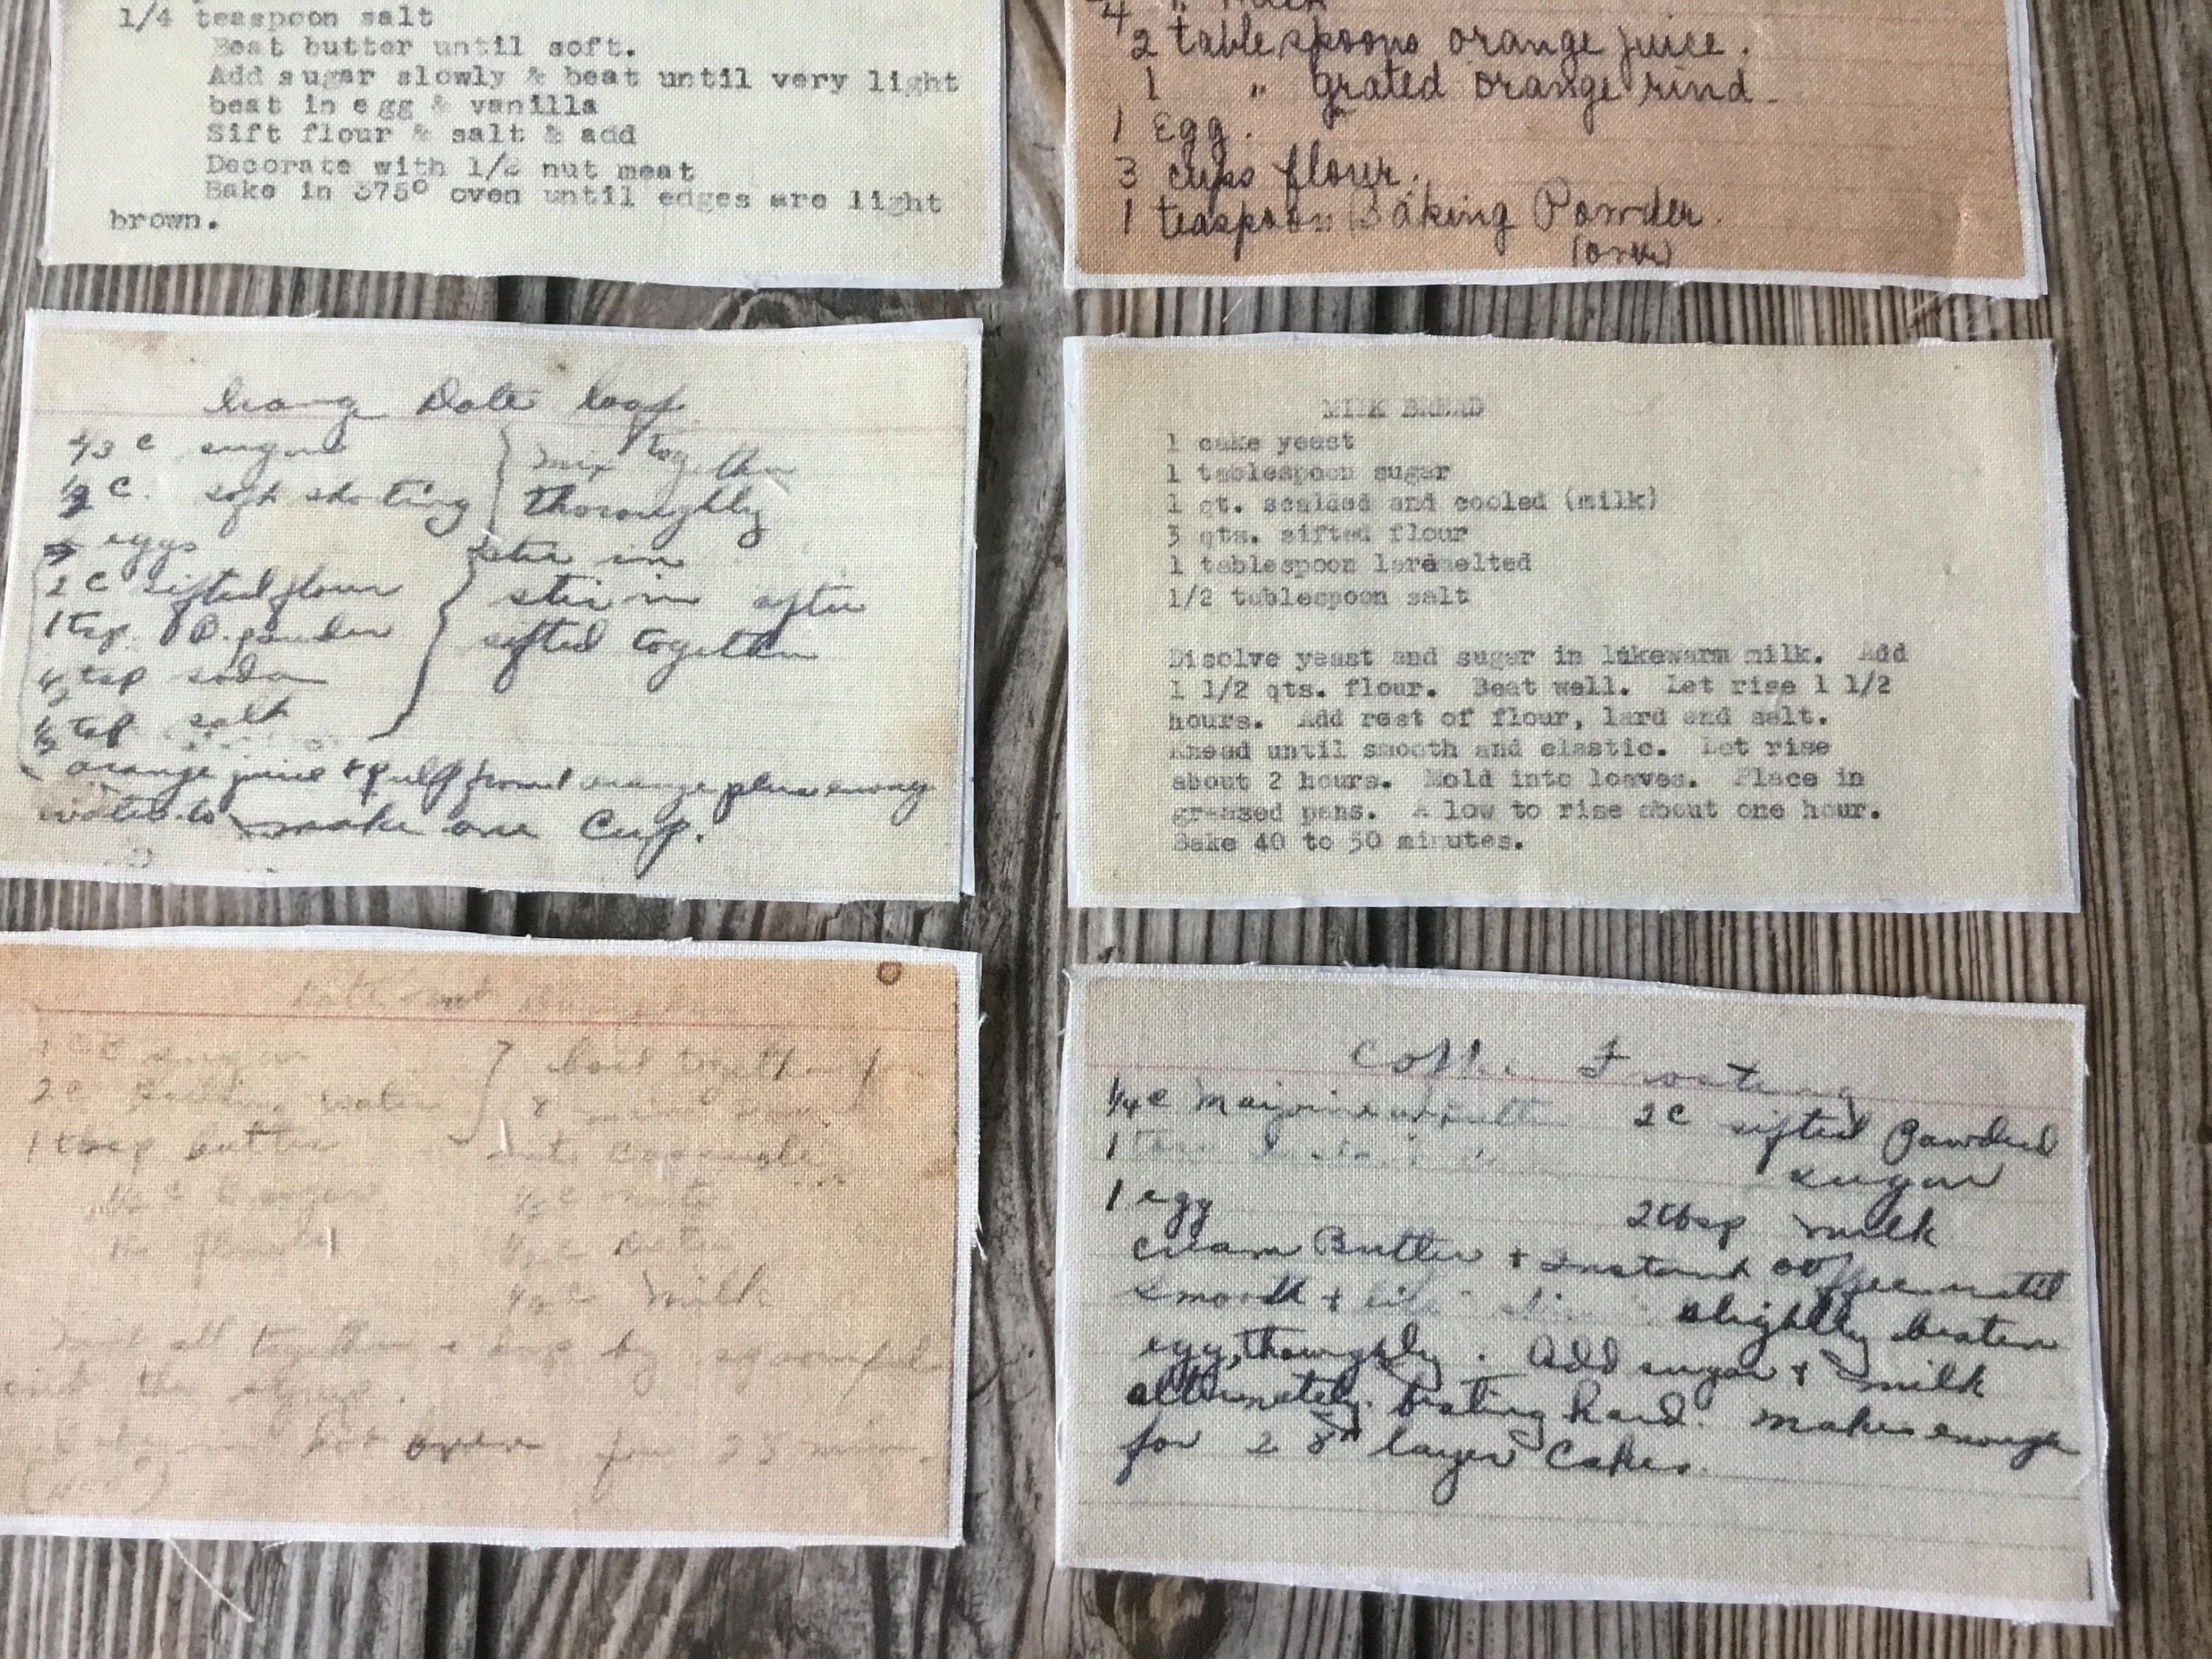 1/4 teaspoon salt
Beat butter until soft.
Add sugar slowly & beat until very light
beat in egg & vanilla
Sift flour & salt & add
Decorate with 1/2 nut meat
Bake in 375° oven until edges are light
brown.
2 tablespoons orange juice.
1 " grated orange rind.
1 Egg.
3 cups flour.
1 teaspoon Baking Powder.
(over)
Date loaf
2/3 c sugar
mix together
1/2 c. soft shorting
thoroughly
eggs
stir in
2 c sifted flour
stir in after
1 tsp. B. powder
sifted together
1/2 tsp soda
1/2 tsp salt
orange juice + pulp from 1 orange plus enoug
water to make one Cup.
MILK BREAD
1 cake yeast
1 tablespoon sugar
1 qt. scalded and cooled (milk)
3 qts. sifted flour
1 tablespoon lard melted
1/2 tablespoon salt
Disolve yeast and sugar in lukewarm milk. Add
1 1/2 qts. flour. Beat well. Let rise 1 1/2
hours. Add rest of flour, lard and salt.
Knead until smooth and elastic. Let rise
about 2 hours. Mold into loaves. Place in
greased pans. A low to rise about one hour.
Bake 40 to 50 minutes.
sugar
boil together
2 c Boiling water
8
1 tbsp butter
into Casserole
1/2 c B. sugar
1/2 c nuts
1/2 c Dates
1/2 c milk
mix all together + drop by spoonfuls
into the syrup.
hot oven for 25 min.
(over)
Coffee Frosting
1/4 c Marjorine or butter
2 c sifted Powdered
sugar
1
1 egg
2 tbsp milk
cream Butter + Instant coffee until
smooth + slightly beaten
egg, thoroughly. Add sugar + milk
alternately. beating hard. makes enough
for 2 8" layer Cakes.